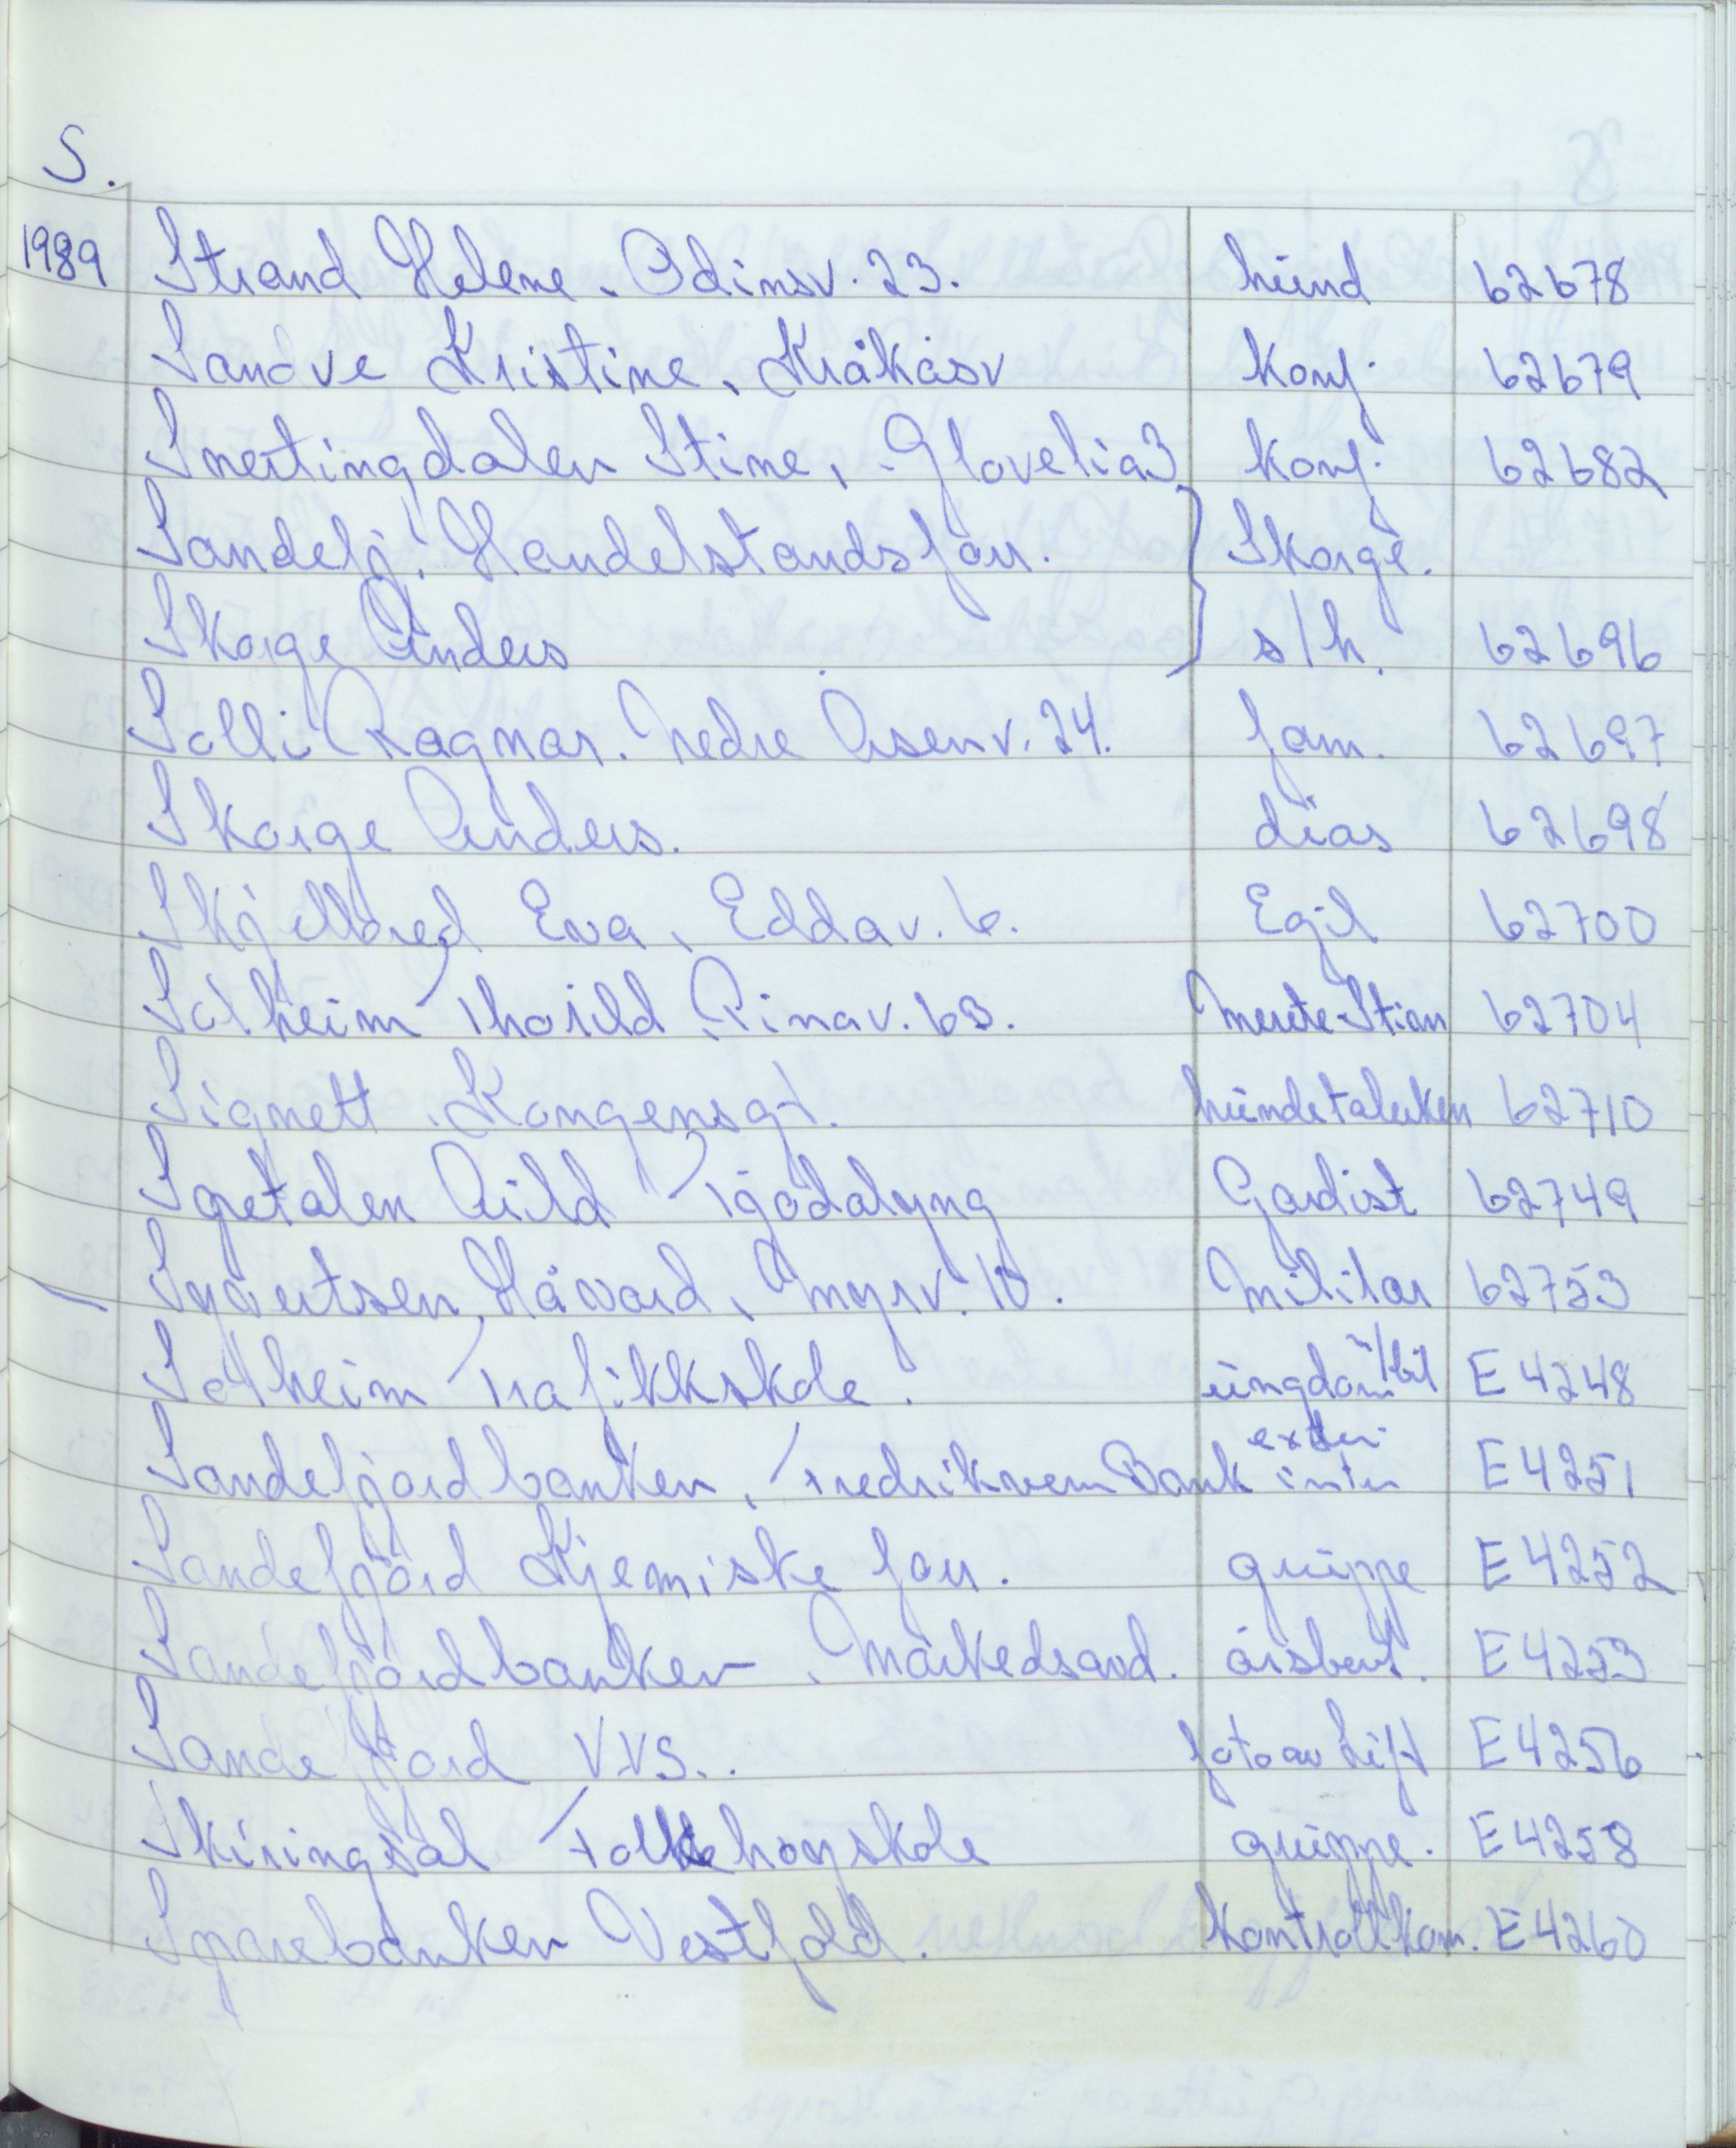 S.
1989 Strand Helene. Odinsv. 23. hund 62678
Sandve Kristine, Kråkåsv konf. 62679
Snertingdalen Stine, Glovelia 3 konf. 62682
Sandefj. Handelstandsfor. } Skorge.
Skorge Anders s/h. 62696
Solli Ragnar. Nedre Åsenv. 24. fam. 62697
Skorge Anders. dias 62698
Skjellbred Eva, Eddav. 6. Egil 62700
Solheim Thorild Pinav. 63. Merete-Stian 62704
Signett, Kongensgt. hundetaluken 62710
Spetalen Arild Tjødalyng Gardist 62749
Syvertsen, Håvard, Myrv. 10. Militær 62753
Solheim Trafikkskole. ungdom m/bil E 4248
Sandefjordbanken, Fredriksvern Bank exter inter E 4251
Sandefjord Kjemiske for. gruppe E 4252
Sandefjordbanken, Markedsavd. årsberet. E 4253
Sandefjord V.V.S.. foto av Lift E 4256
Skiringsal Folkehøyskole gruppe. E 4258
Sparebanken Vestfold. Kontrollkom. E 4260